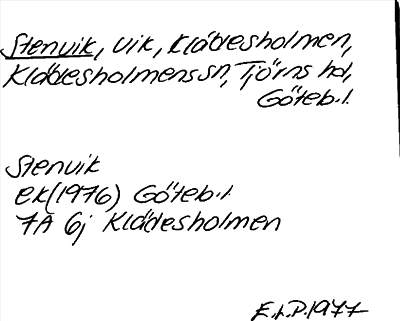 Stenvik, vik, Klädesholmen,
Klädesholmens sn, Tjörns hd,
Göteb.l.
Stenvik
ek (1976) Göteb.l.
7A 6j Klädesholmen
E.h.P. 1977